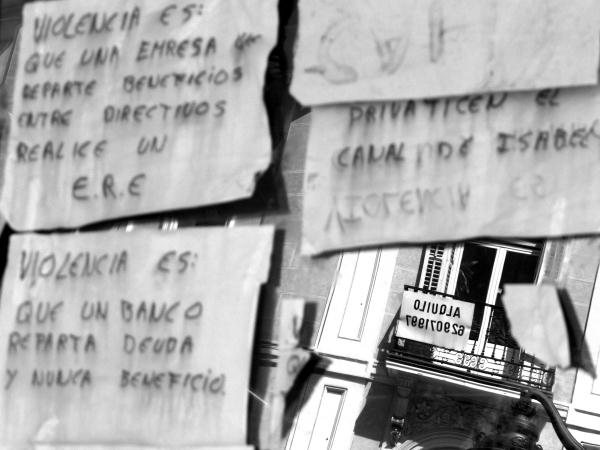 VIOLENCIA ES:
QUE UNA EMRESA QUE
REPARTE BENEFICIOS
ENTRE DIRECTIVOS
REALICE UN
E.R.E
PRIVATICEN EL
CANAL DE ISABEL
VIOLENCIA ES
VIOLENCIA ES:
QUE UN BANCO
REPARTA DEUDA
Y NUNCA BENEFICIO.
ALQUILO
629071997